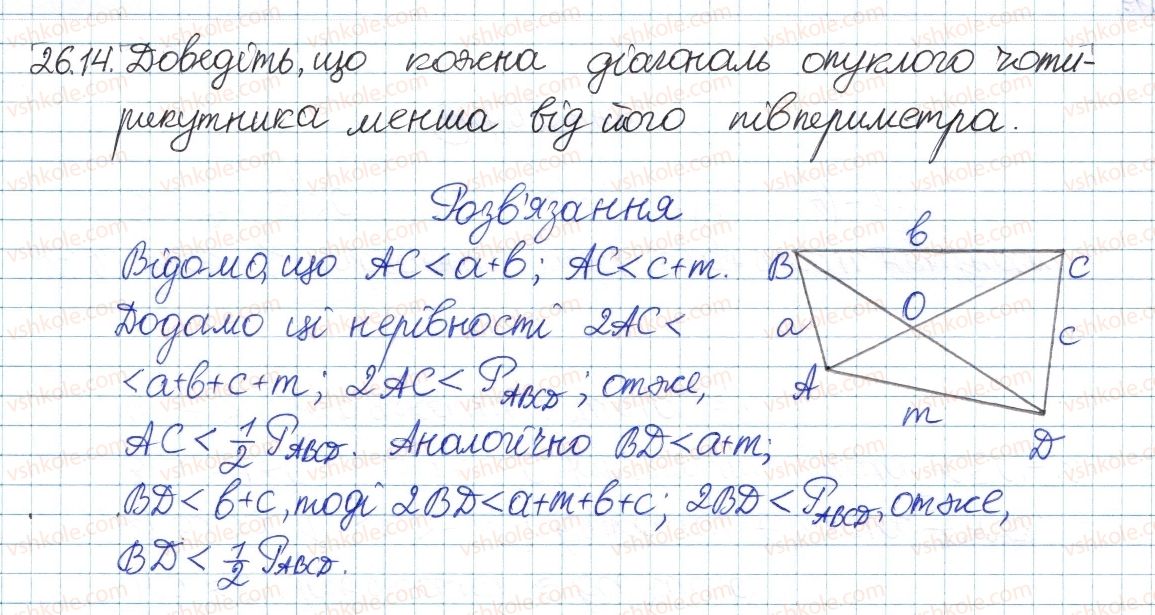 26.14. Доведіть, що кожна діагональ опуклого чоти-
рикутника менша від його півпериметра.
Розв'язання
Відомо, що AC < a+b; AC < c+m.
Додамо ці нерівності 2AC <
< a+b+c+m; 2AC < P_ABCD; отже,
AC < 1/2 P_ABCD. Аналогічно BD < a+m;
BD < b+c, тоді 2BD < a+m+b+c; 2BD < P_ABCD, отже,
BD < 1/2 P_ABCD.
b
B
C
O
a
c
A
m
D
vshkole.com